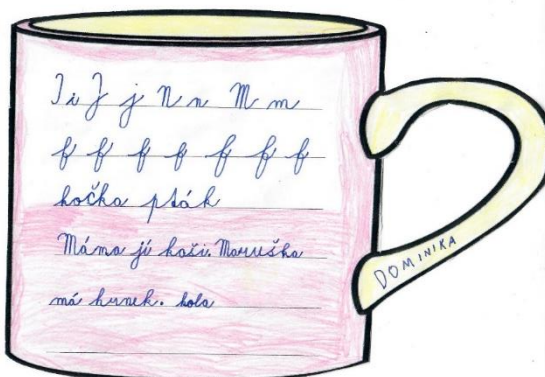 I i J j N n M m
f f f f f f f
kočka pták
Máma jí kaši. Maruška
má hrnek. kola
DOMINIKA